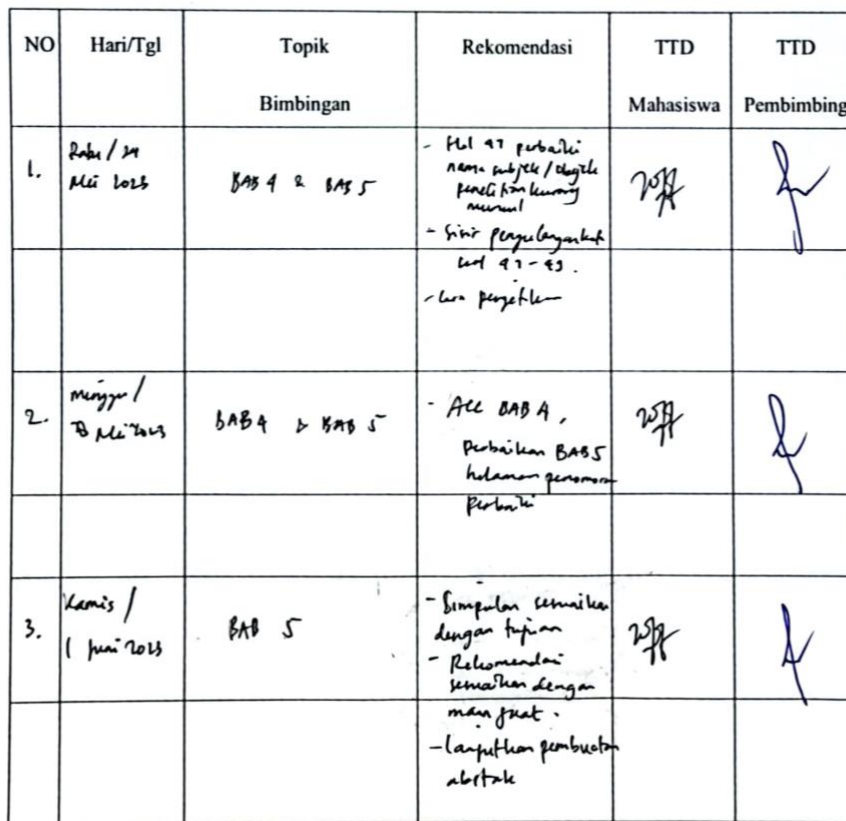 NO Hari/Tgl Topik Rekomendasi TTD TTD
Bimbingan Mahasiswa Pembimbing
1. Rabu / 24
Mei 2023
BAB 4 & BAB 5
- Hal 47 perbaiki
nama subjek/objek
penelitian kurang
- Sisir pengulangan kata
hal 47-49.
- Cara pengetikan
2. Minggu /
Mei 2023
BAB 4 & BAB 5
- Acc BAB 4,
Perbaikan BAB 5
halaman penomoran
perbaiki
3. Kamis /
1 Juni 2023
BAB 5
- Simpulan sesuaikan
dengan tujuan
- Rekomendasi
sesuaikan dengan
manfaat.
- lanjutkan pembuatan
abstrak